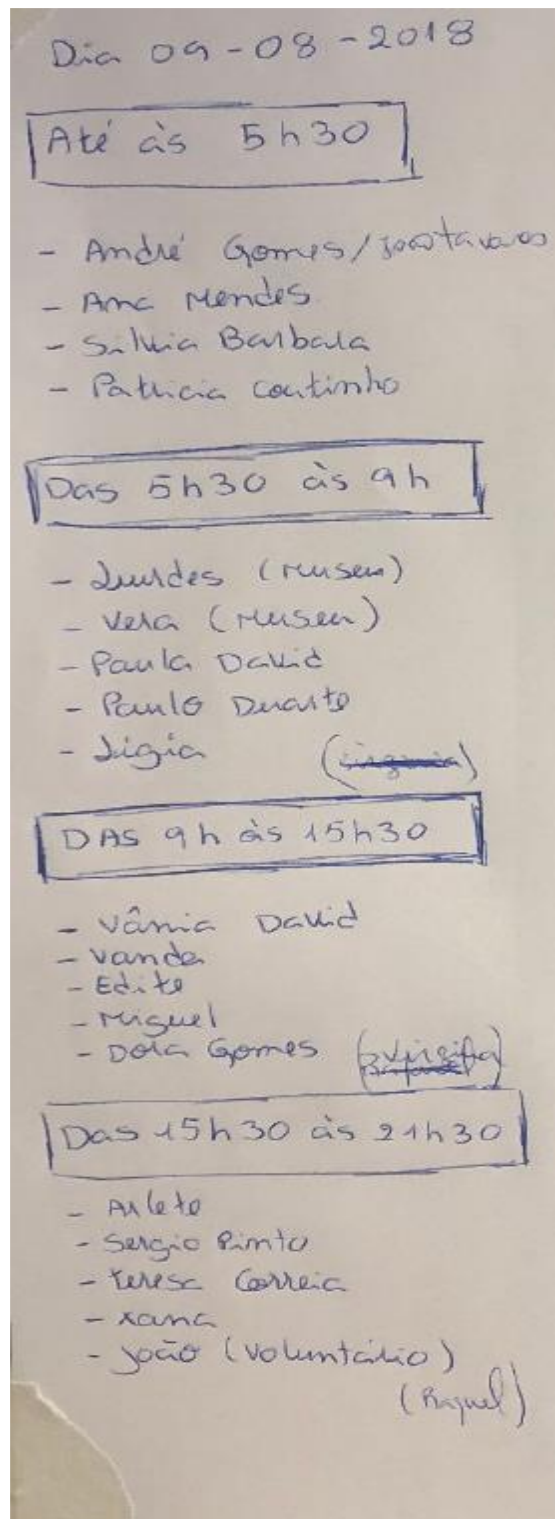 Dia 09-08-2018
Até às 5h30
- André Gomes/João Tavares
- Ana Mendes
- Silvia Barbara
- Patricia Coutinho
Das 5h30 às 9h
- Lurdes (Museu)
- Vera (Museu)
- Paula David
- Paulo Duarte
- Ligia
DAS 9h às 15h30
- Vânia David
- Vanda
- Edite
- Miguel
- Dora Gomes
Das 15h30 às 21h30
- Arlete
- Sergio Pinto
- Teresa Correia
- Xana
- João (Voluntário)
(Raquel)